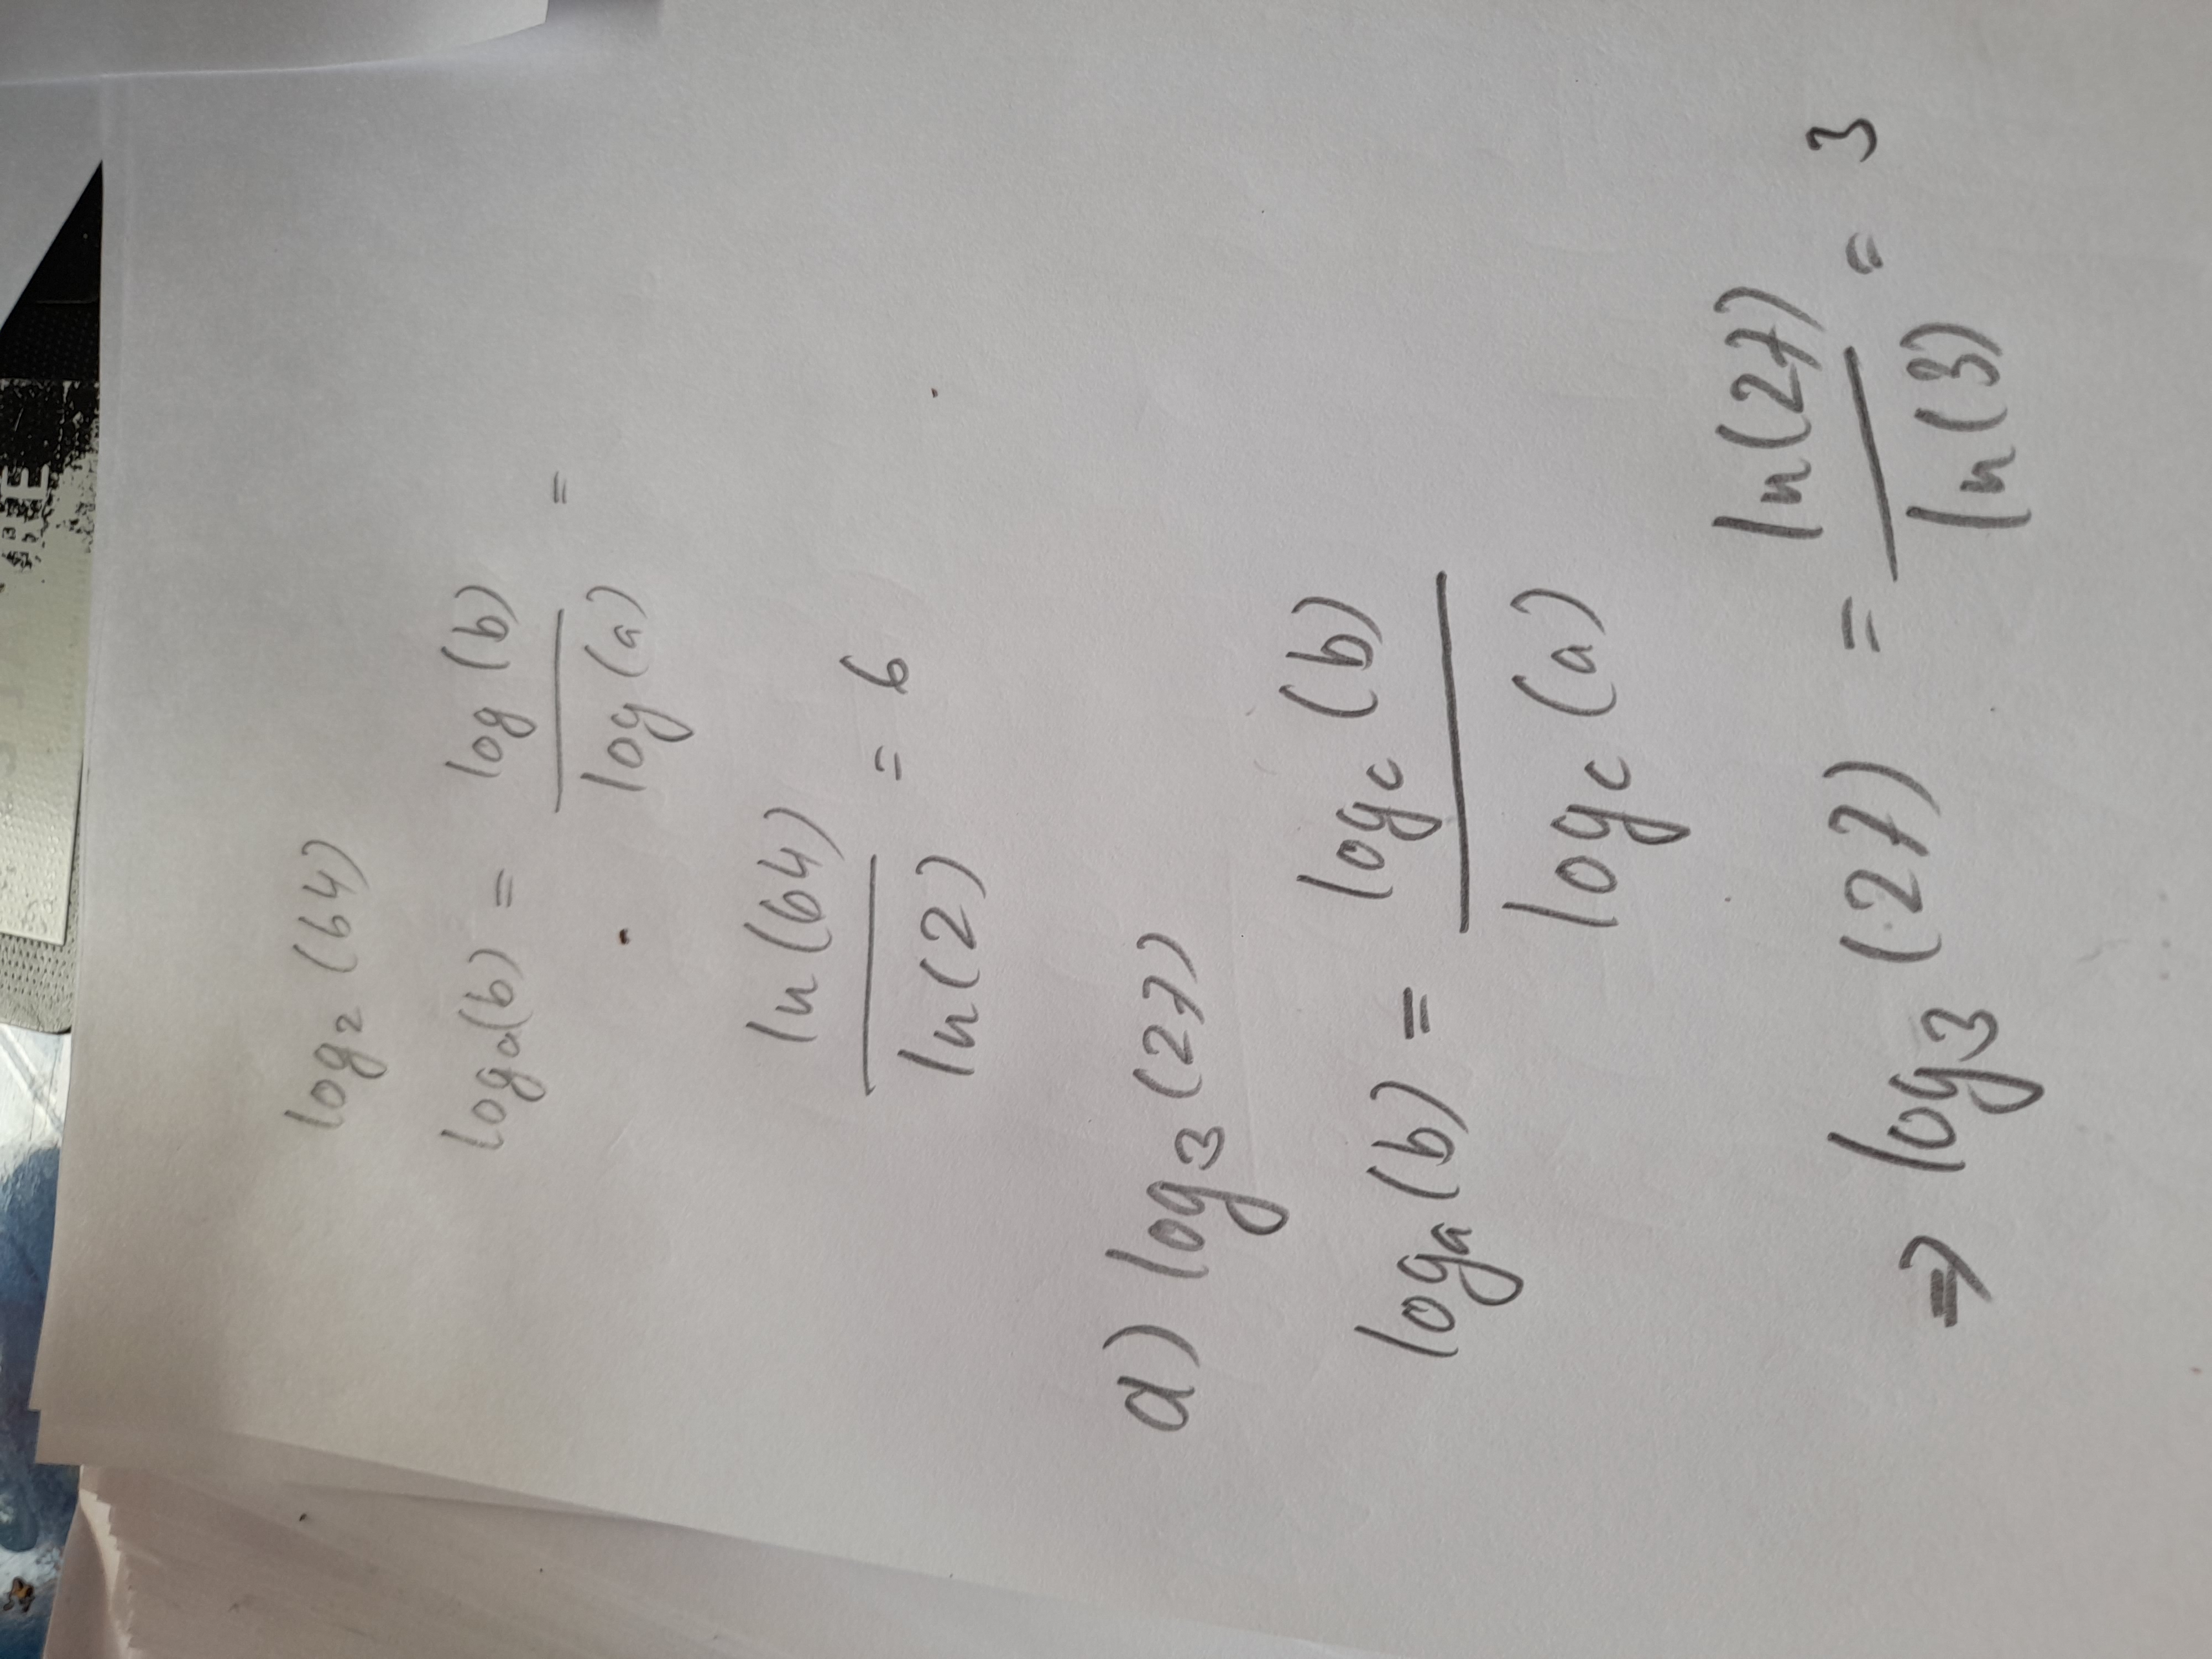 log₂(64)
logₐ(b) = log(b) / log(a) =
ln(64) / ln(2) = 6
a) log₃(27)
logₐ(b) = log꜀(b) / log꜀(a)
⇒ log₃(27) = ln(27) / ln(3) = 3